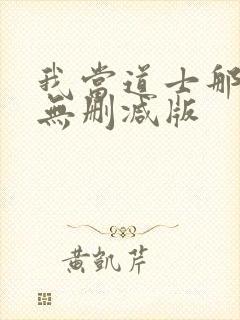 我當道士那
無刪減版
黃凱芹